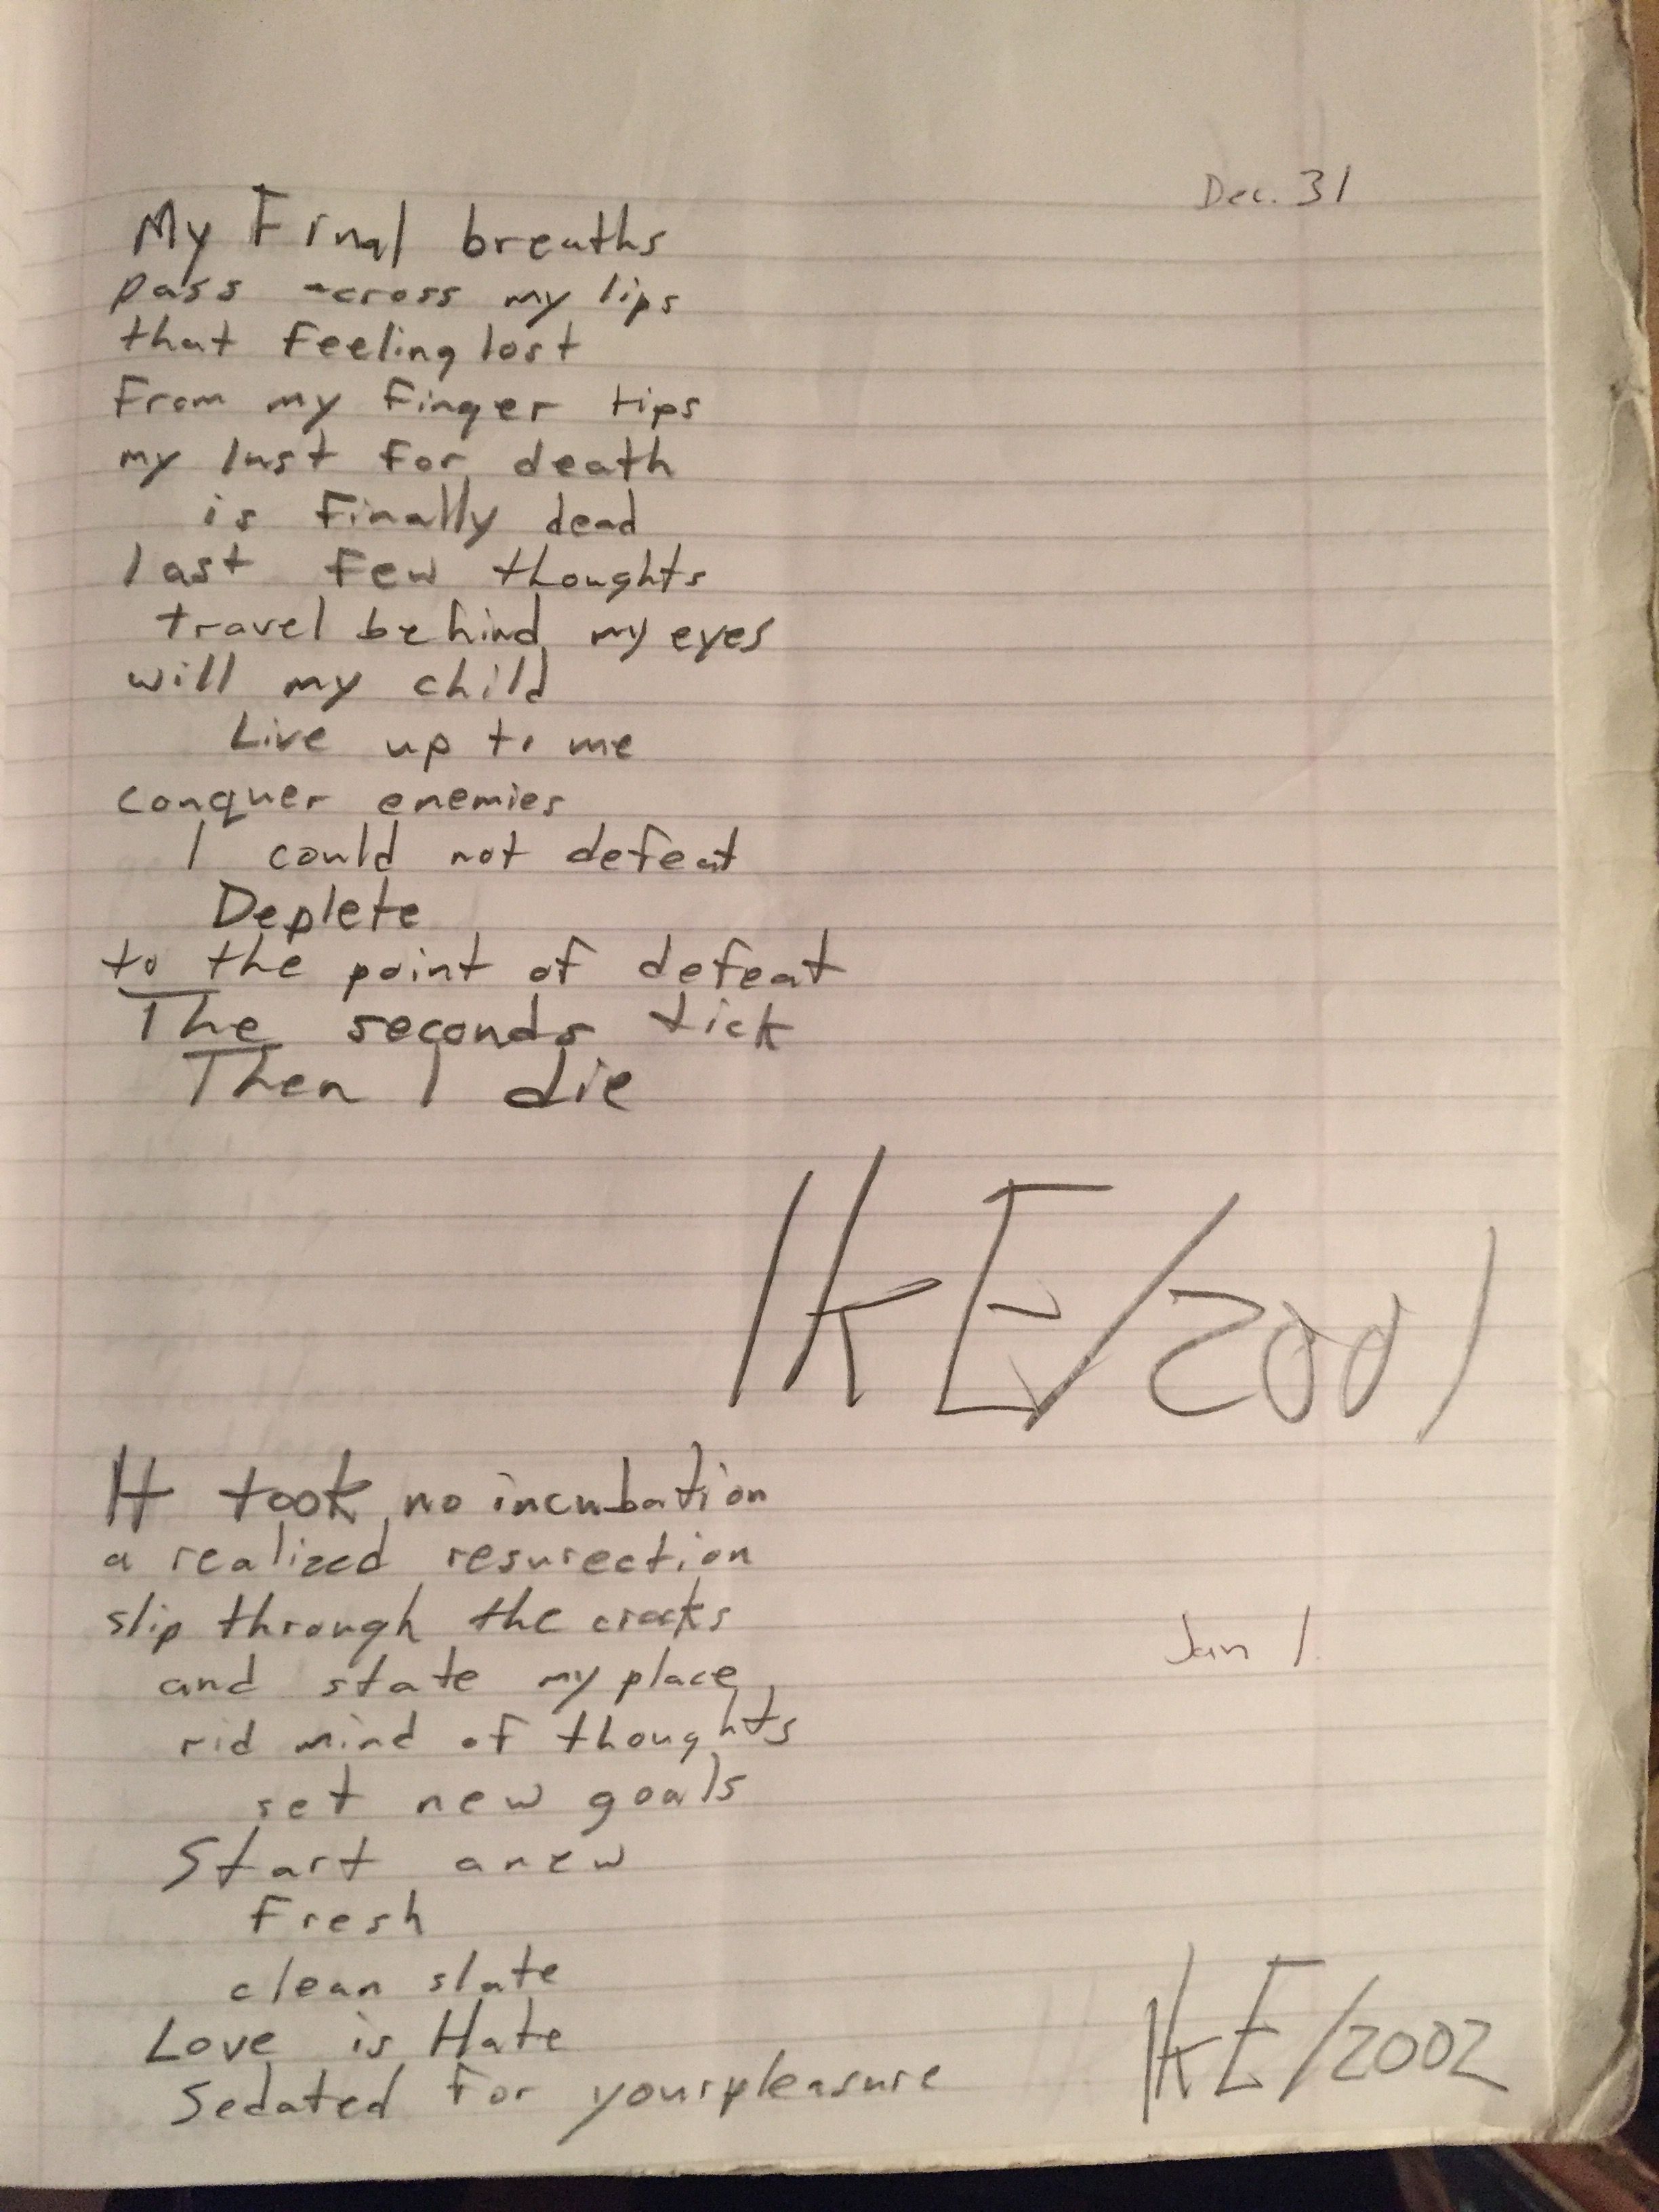 Dec. 31
My Final breaths
pass across my lips
that feeling lost
From my finger tips
my lust for death
is finally dead
last few thoughts
travel behind my eyes
will my child
Live up to me
conquer enemies
I could not defeat
Deplete
to the point of defeat
The seconds tick
Then I die
IkE/2001
It took no incubation
a realized resurection
slip through the cracks
Jan 1.
and state my place
rid mind of thoughts
set new goals
Start anew
Fresh
clean slate
Love is Hate
Sedated for your pleasure
IkE/2002